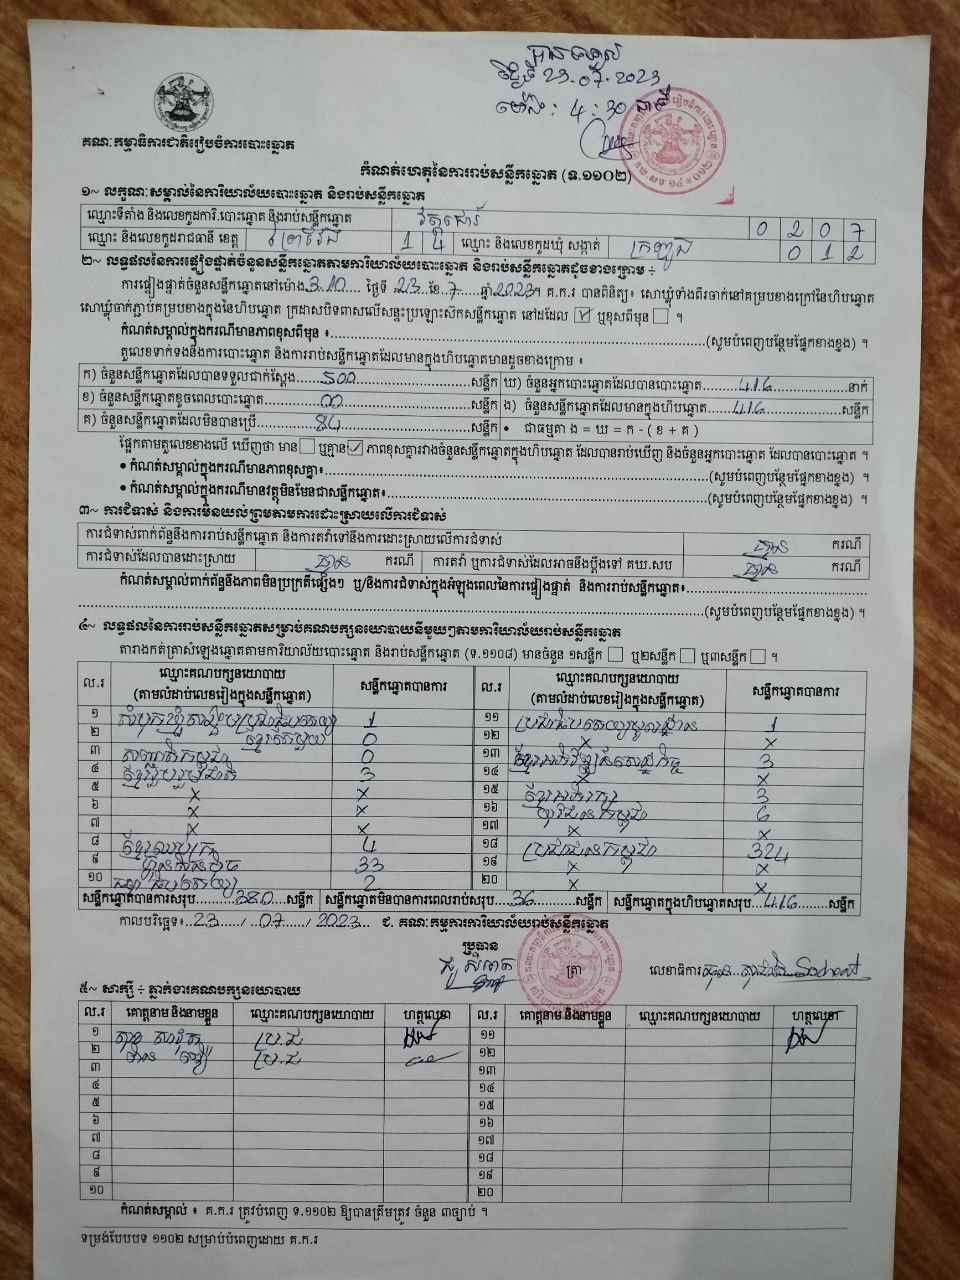 បានទទួល
ថ្ងៃទី 23.07.2023
ម៉ោង : 4 : 30 នាទី
គណៈកម្មាធិការជាតិរៀបចំការបោះឆ្នោត
កំណត់ហេតុនៃការរាប់សន្លឹកឆ្នោត (ទ.១១០២)
១~ លក្ខណៈសម្គាល់នៃការិយាល័យបោះឆ្នោត និងរាប់សន្លឹកឆ្នោត
ឈ្មោះទីតាំង និងលេខកូដការិ.បោះឆ្នោត និងរាប់សន្លឹកឆ្នោត វត្តជោរ៍ 0 2 0 7
ឈ្មោះ និងលេខកូដរាជធានី ខេត្ត ព្រៃវែង 1 4 ឈ្មោះ និងលេខកូដឃុំ សង្កាត់ ក្រញូង 0 1 2
២~ លទ្ធផលនៃការផ្ទៀងផ្ទាត់ចំនួនសន្លឹកឆ្នោតតាមការិយាល័យបោះឆ្នោត និងរាប់សន្លឹកឆ្នោតដូចខាងក្រោម ÷
ការផ្ទៀងផ្ទាត់ចំនួនសន្លឹកឆ្នោតនៅម៉ោង 3.10 ថ្ងៃទី 23 ខែ 7 ឆ្នាំ 2023 ។ គ.ក.រ បានពិនិត្យ៖ សោឃ្លុំទាំងពីរចាក់នៅគម្របខាងក្រៅនៃហិបឆ្នោត
សោឃ្លុំចាក់ភ្ជាប់គម្របខាងក្នុងនៃហិបឆ្នោត ក្រដាសបិទពាសលើសន្ទះប្រឡោះស៊កសន្លឹកឆ្នោត នៅដដែល ☑ ឬខុសពីមុន ☐ ។
កំណត់សម្គាល់ក្នុងករណីមានភាពខុសពីមុន ៖ (សូមបំពេញបន្ថែមផ្នែកខាងខ្នង) ។
តួលេខទាក់ទងនឹងការបោះឆ្នោត និងការរាប់សន្លឹកឆ្នោតដែលមានក្នុងហិបឆ្នោតមានដូចខាងក្រោម ៖
ក) ចំនួនសន្លឹកឆ្នោតដែលបានទទួលជាក់ស្តែង 500 សន្លឹក ឃ) ចំនួនអ្នកបោះឆ្នោតដែលបានបោះឆ្នោត 416 នាក់
ខ) ចំនួនសន្លឹកឆ្នោតខូចពេលបោះឆ្នោត 00 សន្លឹក ង) ចំនួនសន្លឹកឆ្នោតដែលមានក្នុងហិបឆ្នោត 416 សន្លឹក
គ) ចំនួនសន្លឹកឆ្នោតដែលមិនបានប្រើ 84 សន្លឹក • ជាធម្មតា ង = ឃ = ក - ( ខ + គ )
ផ្អែកតាមតួលេខខាងលើ ឃើញថា មាន ☐ ឬគ្មាន ☑ ភាពខុសគ្នារវាងចំនួនសន្លឹកឆ្នោតក្នុងហិបឆ្នោត ដែលបានរាប់ឃើញ និងចំនួនអ្នកបោះឆ្នោត ដែលបានបោះឆ្នោត ។
• កំណត់សម្គាល់ក្នុងករណីមានភាពខុសគ្នា៖ (សូមបំពេញបន្ថែមផ្នែកខាងខ្នង) ។
• កំណត់សម្គាល់ក្នុងករណីមានវត្ថុមិនមែនជាសន្លឹកឆ្នោត៖ (សូមបំពេញបន្ថែមផ្នែកខាងខ្នង) ។
៣~ ការជំទាស់ និងការមិនយល់ព្រមតាមការដោះស្រាយលើការជំទាស់
ការជំទាស់ពាក់ព័ន្ធនឹងការរាប់សន្លឹកឆ្នោត និងការតវ៉ាទៅនឹងការដោះស្រាយលើការជំទាស់ គ្មាន ករណី
ការជំទាស់ដែលបានដោះស្រាយ គ្មាន ករណី ការតវ៉ា ឬការជំទាស់ដែលអាចនឹងប្តឹងទៅ គឃ.សប គ្មាន ករណី
កំណត់សម្គាល់ពាក់ព័ន្ធនឹងភាពមិនប្រក្រតីផ្សេងៗ ឬ/និងការជំទាស់ក្នុងអំឡុងពេលនៃការផ្ទៀងផ្ទាត់ និងការរាប់សន្លឹកឆ្នោត៖
(សូមបំពេញបន្ថែមផ្នែកខាងខ្នង) ។
៤~ លទ្ធផលនៃការរាប់សន្លឹកឆ្នោតសម្រាប់គណបក្សនយោបាយនីមួយៗតាមការិយាល័យរាប់សន្លឹកឆ្នោត
តារាងកត់ត្រាសំឡេងឆ្នោតតាមការិយាល័យបោះឆ្នោត និងរាប់សន្លឹកឆ្នោត (ទ.១១០៨) មានចំនួន ១សន្លឹក ☐ ឬ២សន្លឹក ☐ ឬ៣សន្លឹក ☐ ។
ល.រ ឈ្មោះគណបក្សនយោបាយ (តាមលំដាប់លេខរៀងក្នុងសន្លឹកឆ្នោត) សន្លឹកឆ្នោតបានការ ល.រ ឈ្មោះគណបក្សនយោបាយ (តាមលំដាប់លេខរៀងក្នុងសន្លឹកឆ្នោត) សន្លឹកឆ្នោតបានការ
១ សំបុកឃ្មុំសង្គមប្រជាធិបតេយ្យ 1 ១១ ប្រជាធិបតេយ្យមូលដ្ឋាន 1
២ ខ្មែរតែមួយ 0 ១២ x x
៣ សញ្ជាតិកម្ពុជា 0 ១៣ ខ្មែរអភិវឌ្ឍន៍សេដ្ឋកិច្ច 3
៤ ខ្មែររួបរួមជាតិ 3 ១៤ x x
៥ x x ១៥ ខ្មែរអភិរក្ស 3
៦ x x ១៦ យុវជនកម្ពុជា 6
៧ x x ១៧ x x
៨ ខ្មែរឈប់ក្រ 4 ១៨ ប្រជាជនកម្ពុជា 324
៩ ហ្វ៊ុនស៊ិនប៉ិច 33 ១៩ x x
១០ កម្លាំងប្រជាធិបតេយ្យ 2 ២០ x x
សន្លឹកឆ្នោតបានការសរុប 380 សន្លឹក សន្លឹកឆ្នោតមិនបានការពេលរាប់សរុប 36 សន្លឹក សន្លឹកឆ្នោតក្នុងហិបឆ្នោតសរុប 416 សន្លឹក
កាលបរិច្ឆេទ៖ 23 / 07 / 2023 ជ. គណៈកម្មការការិយាល័យរាប់សន្លឹកឆ្នោត
ប្រធាន
ត្រា លេខាធិការ
៥~ សាក្សី ÷ ភ្នាក់ងារគណបក្សនយោបាយ
ល.រ គោត្តនាម និងនាមខ្លួន ឈ្មោះគណបក្សនយោបាយ ហត្ថលេខា ល.រ គោត្តនាម និងនាមខ្លួន ឈ្មោះគណបក្សនយោបាយ ហត្ថលេខា
១ ប្រ.ជ ១១
២ ប្រ.ជ ១២
៣ ១៣
៤ ១៤
៥ ១៥
៦ ១៦
៧ ១៧
៨ ១៨
៩ ១៩
១០ ២០
កំណត់សម្គាល់ ៖ គ.ក.រ ត្រូវបំពេញ ទ.១១០២ ឱ្យបានត្រឹមត្រូវ ចំនួន ៣ច្បាប់ ។
ទម្រង់បែបបទ ១១០២ សម្រាប់បំពេញដោយ គ.ក.រ